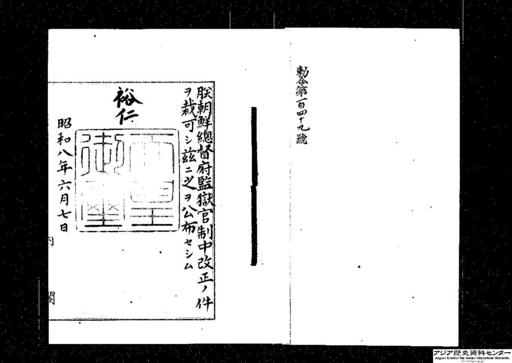 勅令第百四十九號
朕朝鮮總督府監獄官制中改正ノ件
ヲ裁可シ茲ニ之ヲ公布セシム
裕仁
天皇御璽
昭和八年六月七日
内閣
アジア歴史資料センター
Japan Center for Asian Historical Records